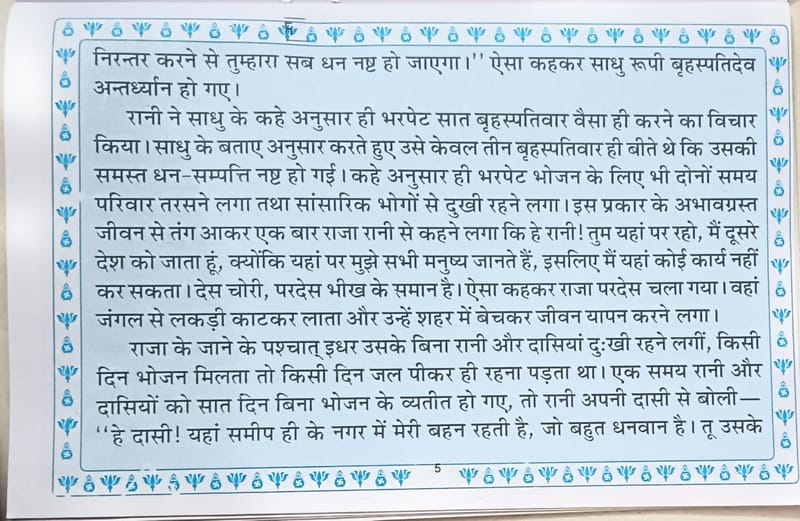 निरन्तर करने से तुम्हारा सब धन नष्ट हो जाएगा।’’ ऐसा कहकर साधु रूपी बृहस्पतिदेव
अन्तर्ध्यान हो गए।
रानी ने साधु के कहे अनुसार ही भरपेट सात बृहस्पतिवार वैसा ही करने का विचार
किया। साधु के बताए अनुसार करते हुए उसे केवल तीन बृहस्पतिवार ही बीते थे कि उसकी
समस्त धन-सम्पत्ति नष्ट हो गई। कहे अनुसार ही भरपेट भोजन के लिए भी दोनों समय
परिवार तरसने लगा तथा सांसारिक भोगों से दुखी रहने लगा। इस प्रकार के अभावग्रस्त
जीवन से तंग आकर एक बार राजा रानी से कहने लगा कि हे रानी! तुम यहां पर रहो, मैं दूसरे
देश को जाता हूं, क्योंकि यहां पर मुझे सभी मनुष्य जानते हैं, इसलिए मैं यहां कोई कार्य नहीं
कर सकता। देस चोरी, परदेस भीख के समान है। ऐसा कहकर राजा परदेस चला गया। वहां
जंगल से लकड़ी काटकर लाता और उन्हें शहर में बेचकर जीवन यापन करने लगा।
राजा के जाने के पश्चात् इधर उसके बिना रानी और दासियां दुःखी रहने लगीं, किसी
दिन भोजन मिलता तो किसी दिन जल पीकर ही रहना पड़ता था। एक समय रानी और
दासियों को सात दिन बिना भोजन के व्यतीत हो गए, तो रानी अपनी दासी से बोली—
‘‘हे दासी! यहां समीप ही के नगर में मेरी बहन रहती है, जो बहुत धनवान है। तू उसके
5